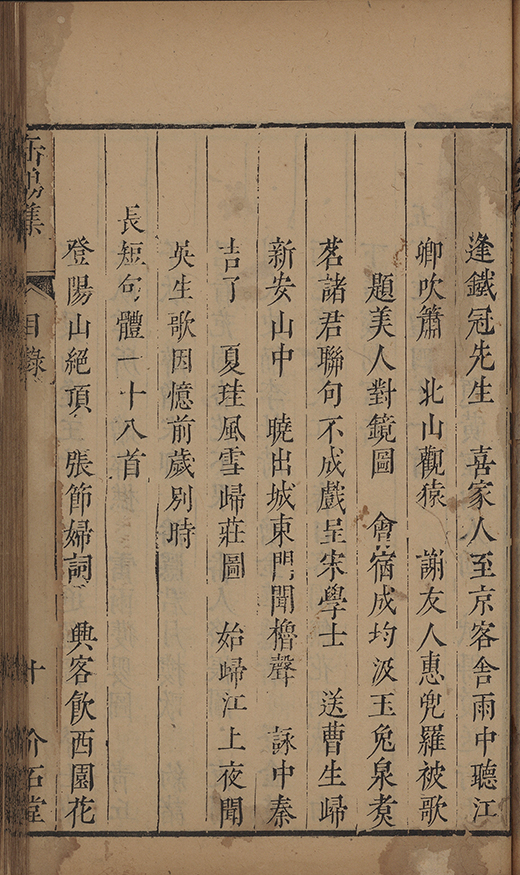 逢鐵冠先生　喜家人至京客舍雨中聽江
卿吹簫　北山觀猿　謝友人惠兜羅被歌
題美人對鏡圖　會宿成均汲玉兔泉煑
茗諸君聯句不成戲呈宋學士　送曹生歸
新安山中　曉出城東門聞櫓聲　詠中秦
吉了　夏珪風雪歸莊圖　始歸江上夜聞
吳生歌因憶前歲別時
長短句體一十八首
登陽山絕頂　張節婦詞　與客飲西園花
缶鳴集　目錄　十　介石堂